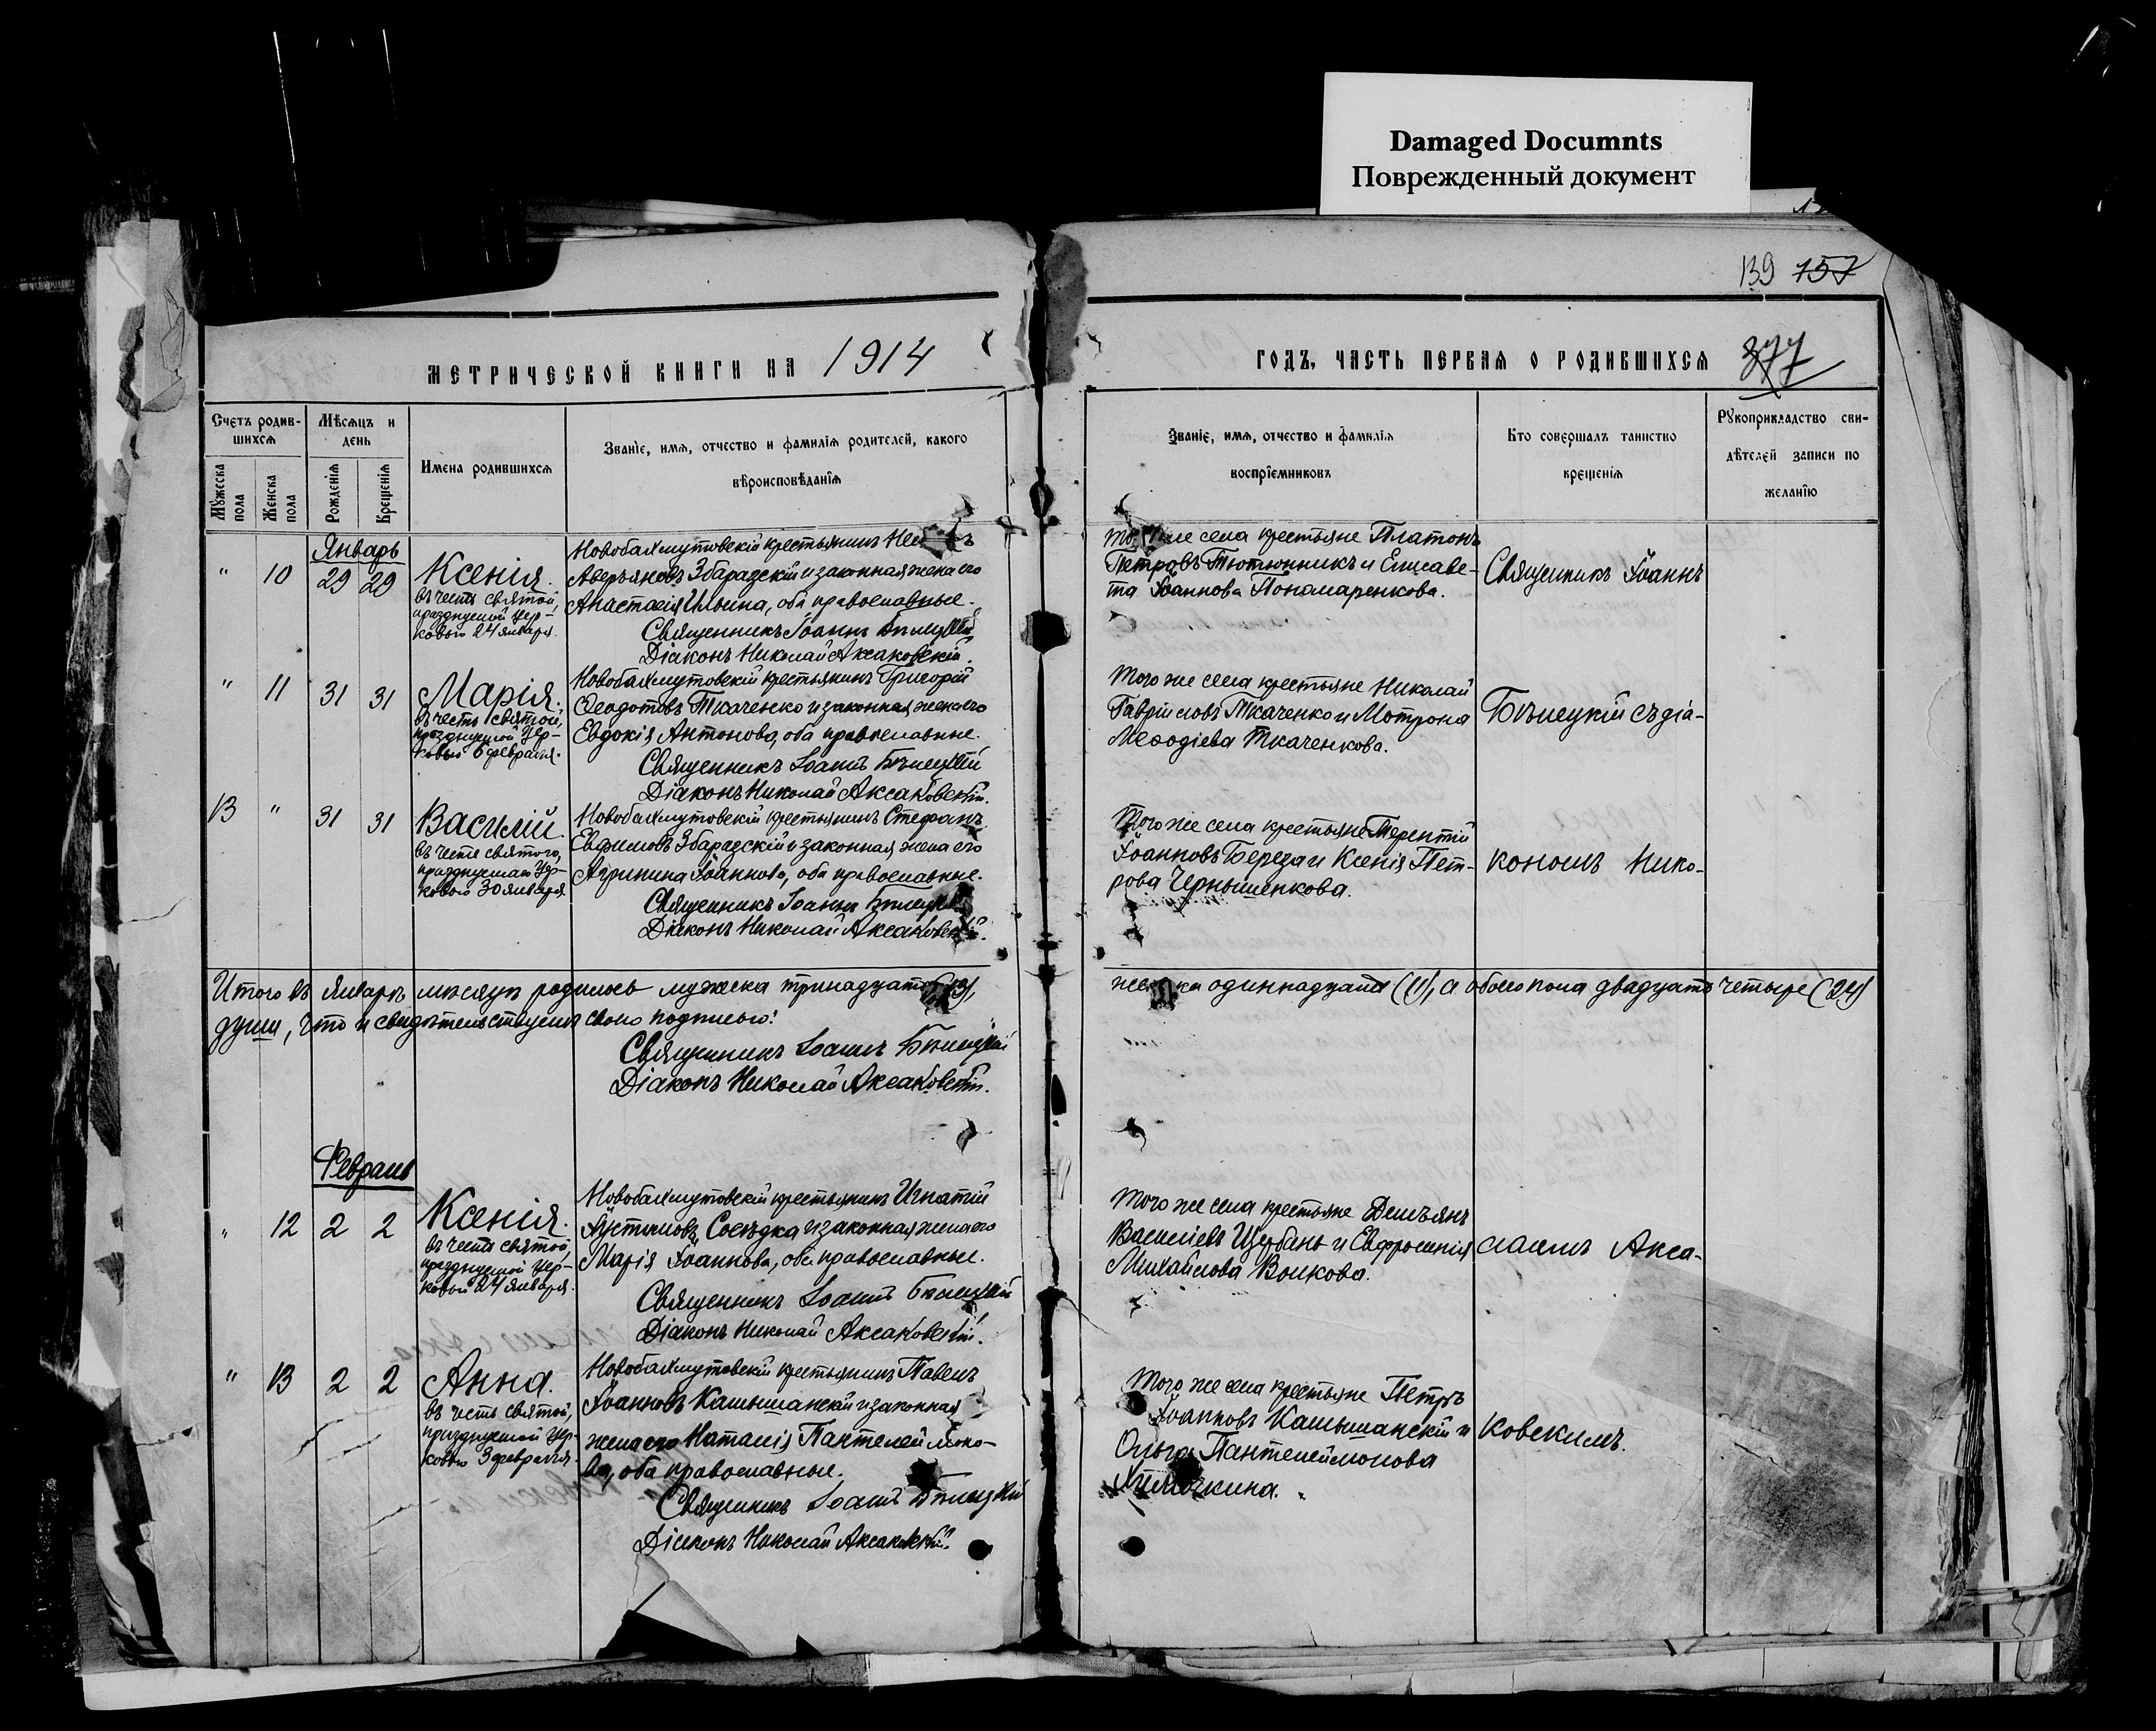 Damaged Documnts
Поврежденный документ
139 157
МЕТРИЧЕСКОЙ КНИГИ НА 1914
ГОДЪ, ЧАСТЬ ПЕРВАЯ О РОДИВШИХСЯ 377
Счетъ родив-
шихся
Мѣсяцъ и
день
Мужеска
пола
Женска
пола
Рожденія
Крещенія
Имена родившихся
Званіе, имя, отчество и фамилія родителей, какого
вѣроисповѣданія
Званіе, имя, отчество и фамилія
воспріемниковъ
Кто совершалъ таинство
крещенія
Рукоприкладство сви-
дѣтелей записи по
желанію
Январь
" 10 29 29
Ксенія.
въ честь святой,
празднуемой Цер-
ковью 24 января.
Новобахмутовскій крестьянинъ
Аверьяновъ Збаразскій и законная жена его
Анастасія Ильина, оба православные.
Священникъ Іоаннъ Бѣлецкій
Діаконъ Николай Аксаковскій.
же села крестьяне Платонъ
Петровъ Тютюнникъ и Елисаве-
та Іоаннова Пономаренкова.
Священникъ Іоаннъ
" 11 31 31
Марія.
въ честь святой,
празднуемой Цер-
ковью 6 февраля.
Новобахмутовскій крестьянинъ Григорій
Ѳеодотовъ Ткаченко и законная жена его
Евдокія Антонова, оба православные.
Священникъ Іоаннъ Бѣлецкій
Діаконъ Николай Аксаковскій.
Того же села крестьяне Николай
Гавріиловъ Ткаченко и Мотрона
Меѳодіева Ткаченкова.
Бѣлецкій съ діа-
13 " 31 31
Василій
въ честь святого,
празднуемаго Цер-
ковью 30 января
Новобахмутовскій крестьянинъ Стефанъ
Евфимовъ Збаразскій и законная жена его
Агрипина Іоаннова, оба православные.
Священникъ Іоаннъ Бѣлецкій
Діаконъ Николай Аксаковскій.
Того же села крестьяне Терентій
Іоанновъ Береза и Ксенія Пет-
рова Чернышенкова.
кономъ Нико-
Итого въ январѣ мѣсяцѣ родилось мужеска тринадцать (13),
женска одиннадцать (11), а обоего пола двадцать четыре (24)
души, что и свидѣтельствуемъ своею подписью:
Священникъ Іоаннъ Бѣлецкій
Діаконъ Николай Аксаковскій.
Февраль
" 12 2 2
Ксенія.
въ честь святой,
празднуемой Цер-
ковью 24 января.
Новобахмутовскій крестьянинъ Игнатій
Сосѣдка и законная жена его
Марія Іоаннова, оба православные.
Священникъ Іоаннъ Бѣлецкій
Діаконъ Николай Аксаковскій.
Того же села крестьяне Демьянъ
Василіевъ Щербань и Евфросинія
Михайлова Волкова.
лаемъ Акса-
" 13 2 2
Анна.
въ честь святой,
празднуемой Цер-
ковью 3 февраля.
Новобахмутовскій крестьянинъ Павелъ
Іоанновъ Камышанскій и законная
жена его Наталія Пантелеймоно-
ва, оба православные.
Священникъ Іоаннъ Бѣлецкій
Діаконъ Николай Аксаковскій.
Того же села крестьяне Петръ
Іоанновъ Камышанскій и
Ольга Пантелеймонова
ковскимъ.